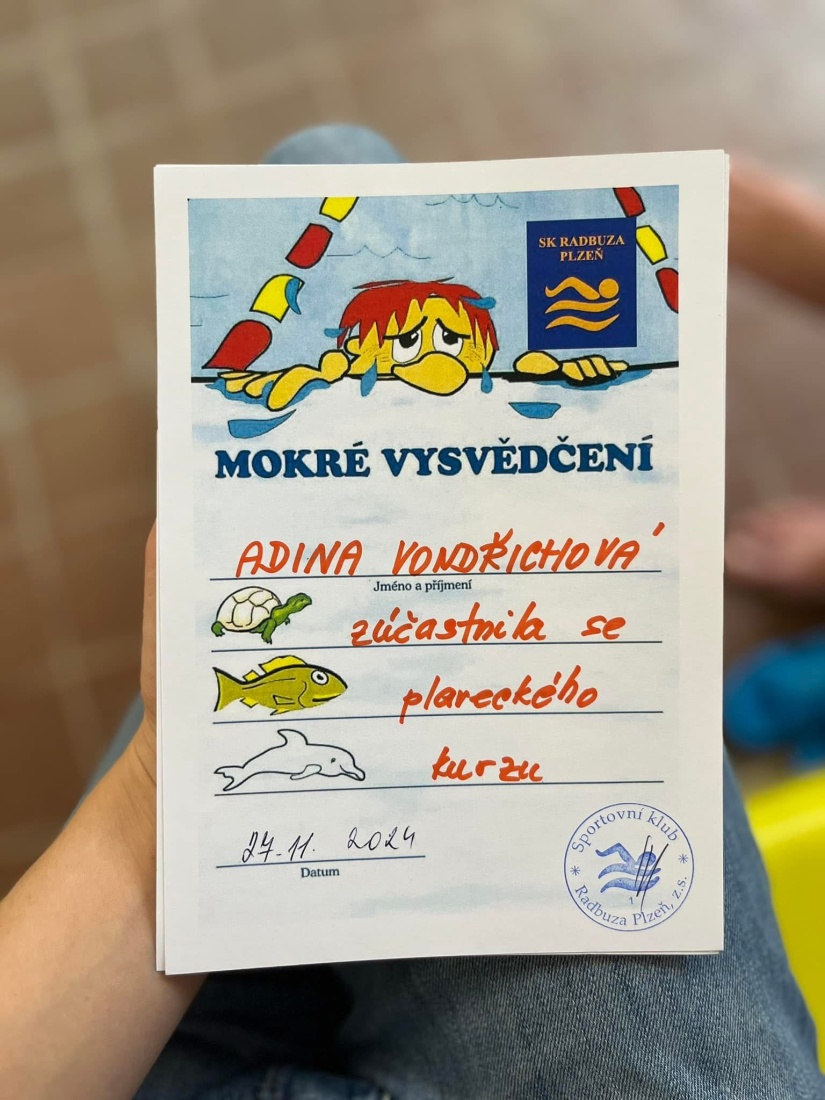 SK RADBUZA
PLZEŇ
MOKRÉ VYSVĚDČENÍ
ADINA VONDŘICHOVÁ
Jméno a příjmení
zúčastnila se
plareckého
kurzu
27.11. 2024
Datum
Sportovní klub
1
Radbuza Plzeň, z.s.